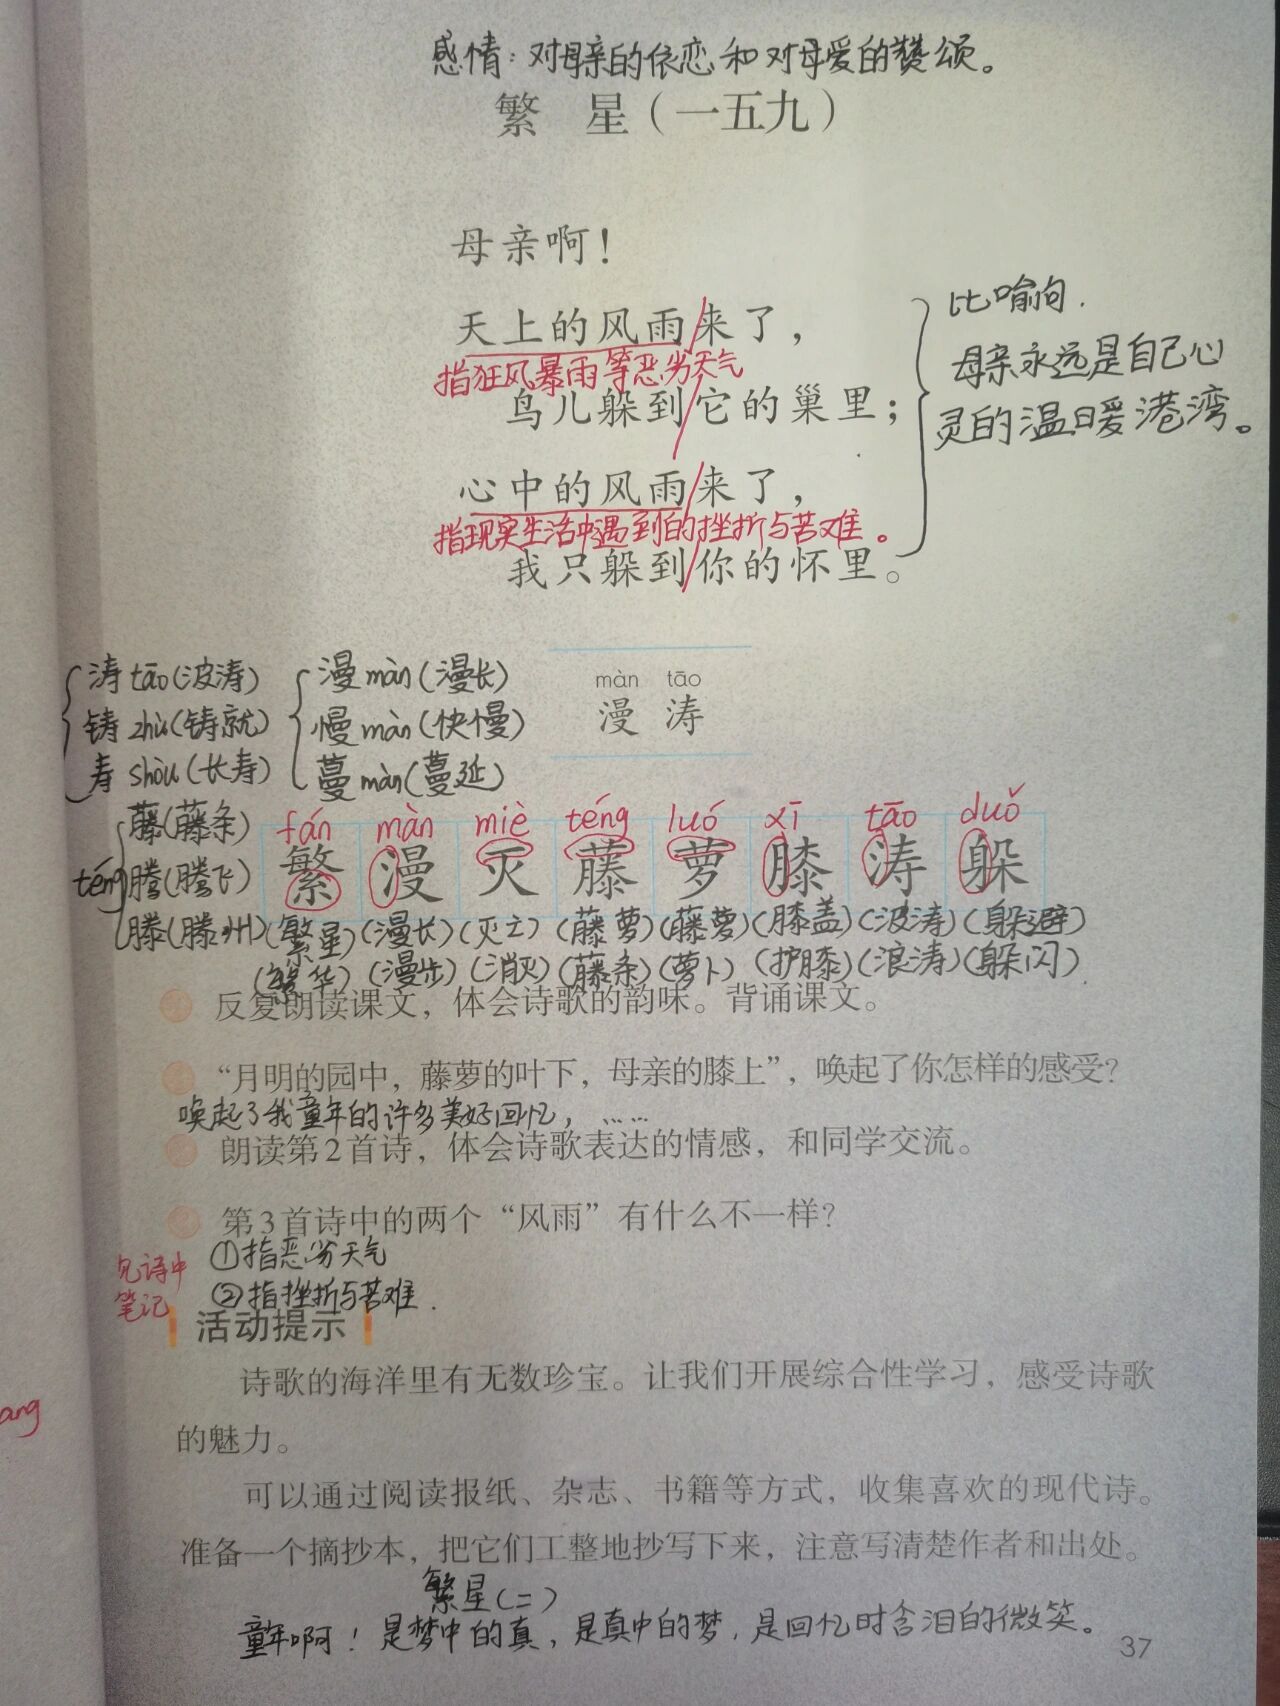 感情：对母亲的依恋和对母爱的赞颂。
繁 星（一五九）
母亲啊！
天上的风雨来了，
指狂风暴雨等恶劣天气
鸟儿躲到它的巢里；
心中的风雨来了，
指现实生活中遇到的挫折与苦难。
我只躲到你的怀里。
比喻句.
母亲永远是自己心
灵的温暖港湾。
涛 tāo(波涛)
铸 zhù(铸就)
寿 shòu(长寿)
漫 màn(漫长)
慢 màn(快慢)
蔓 màn(蔓延)
màn tāo
漫 涛
téng
藤(藤条)
腾(腾飞)
滕(滕州)
fán màn miè téng luó xī tāo duǒ
繁 漫 灭 藤 萝 膝 涛 躲
(繁星)(漫长)(灭亡)(藤萝)(藤萝)(膝盖)(波涛)(躲避)
(繁华)(漫步)(消灭)(藤条)(萝卜)(护膝)(浪涛)(躲闪)
反复朗读课文，体会诗歌的韵味。背诵课文。
“月明的园中，藤萝的叶下，母亲的膝上”，唤起了你怎样的感受？
唤起了我童年的许多美好回忆，……
朗读第2首诗，体会诗歌表达的情感，和同学交流。
第3首诗中的两个“风雨”有什么不一样？
①指恶劣天气
②指挫折与苦难.
见诗中
笔记
活动提示
诗歌的海洋里有无数珍宝。让我们开展综合性学习，感受诗歌
的魅力。
可以通过阅读报纸、杂志、书籍等方式，收集喜欢的现代诗。
准备一个摘抄本，把它们工整地抄写下来，注意写清楚作者和出处。
繁星(二)
童年啊！是梦中的真，是真中的梦，是回忆时含泪的微笑。
37
ang